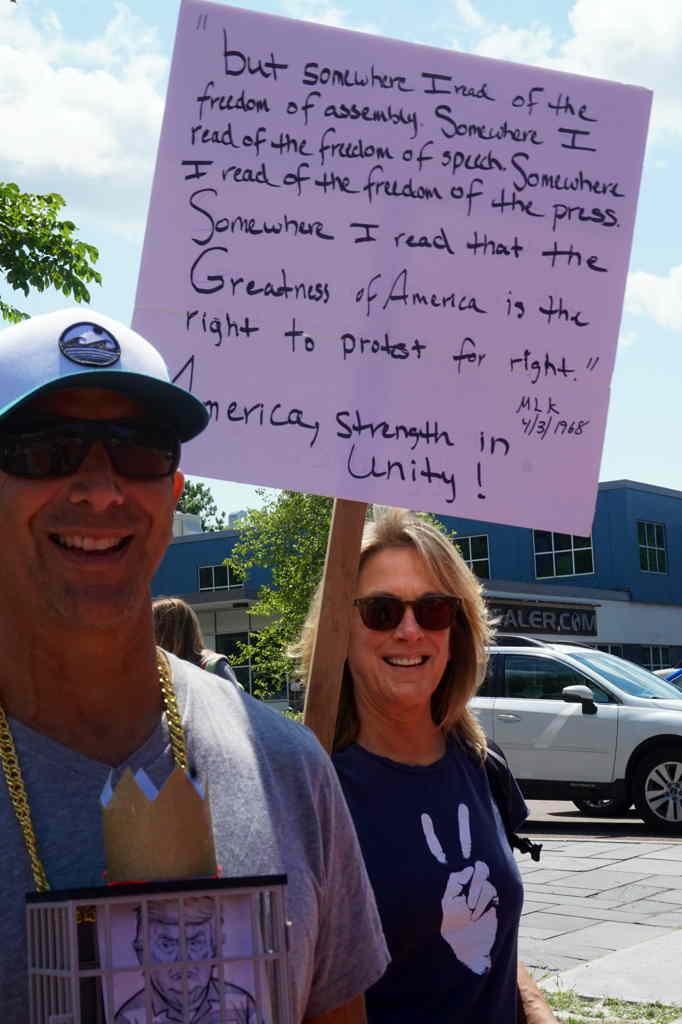 "but somewhere I read of the
freedom of assembly. Somewhere I
read of the freedom of speech. Somewhere
I read of the freedom of the press.
Somewhere I read that the
Greatness of America is the
right to protest for right."
MLK
4/3/1968
America, strength in
Unity!
ALER.COM